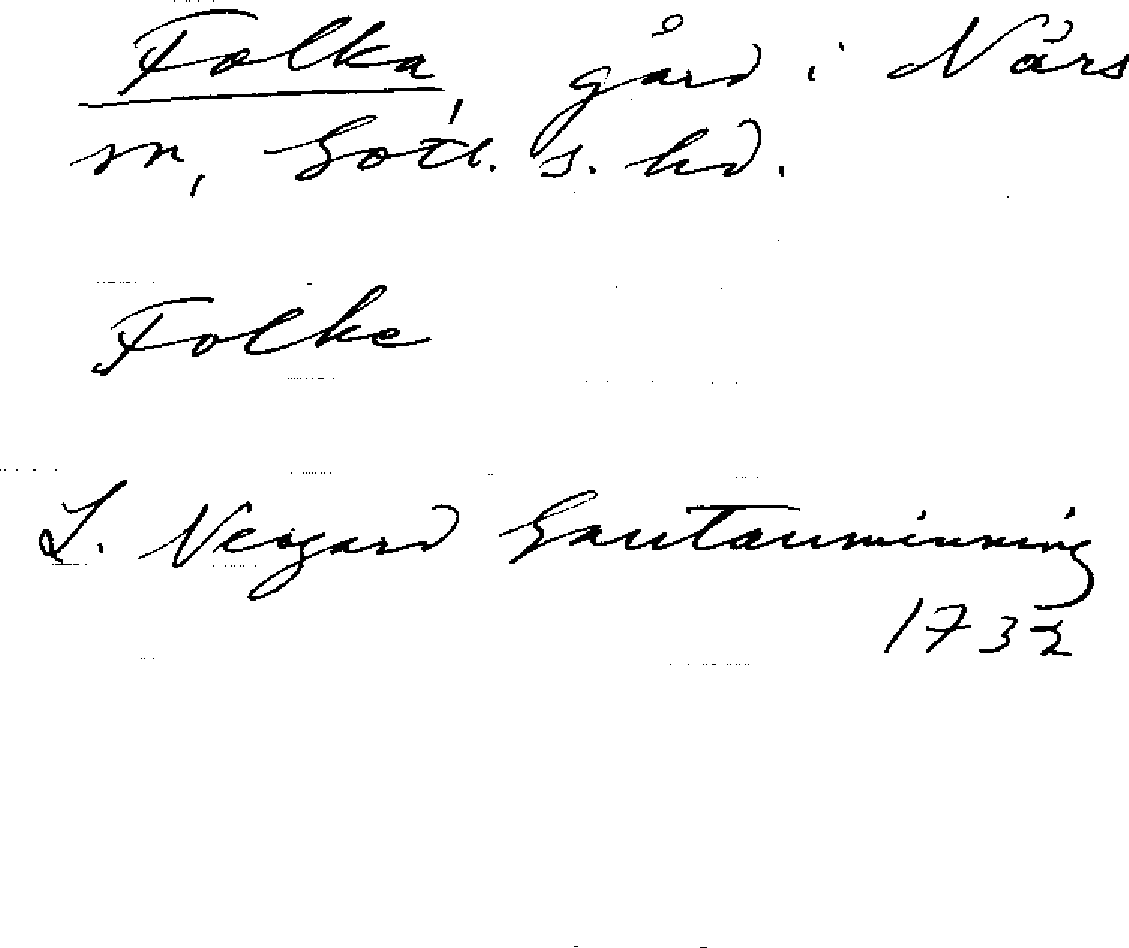 Folka, gård i Närs
sn, Gotl. s. hd.
Folke
L. Neogard Gautauminning
1732